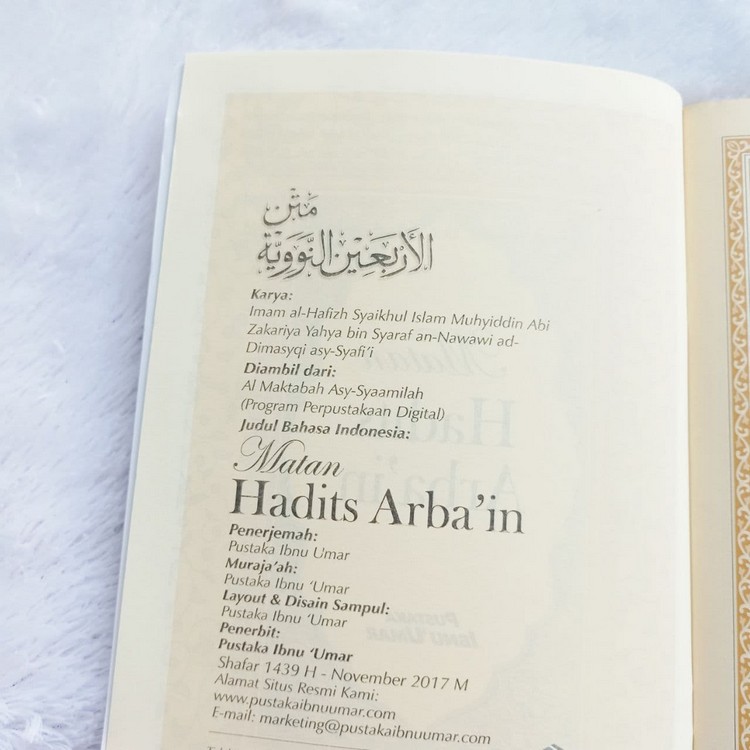 مَتْن
الأَرْبَعِيْن النَّوَوِيَّة
Karya:
Imam al-Hafizh Syaikhul Islam Muhyiddin Abi
Zakariya Yahya bin Syaraf an-Nawawi ad-
Dimasyqi asy-Syafi'i
Diambil dari:
Al Maktabah Asy-Syaamilah
(Program Perpustakaan Digital)
Judul Bahasa Indonesia:
Matan
Hadits Arba'in
Penerjemah:
Pustaka Ibnu Umar
Muraja'ah:
Pustaka Ibnu 'Umar
Layout & Disain Sampul:
Pustaka Ibnu 'Umar
Penerbit:
Pustaka Ibnu 'Umar
Shafar 1439 H - November 2017 M
Alamat Situs Resmi Kami:
www.pustakaibnuumar.com
E-mail: marketing@pustakaibnuumar.com